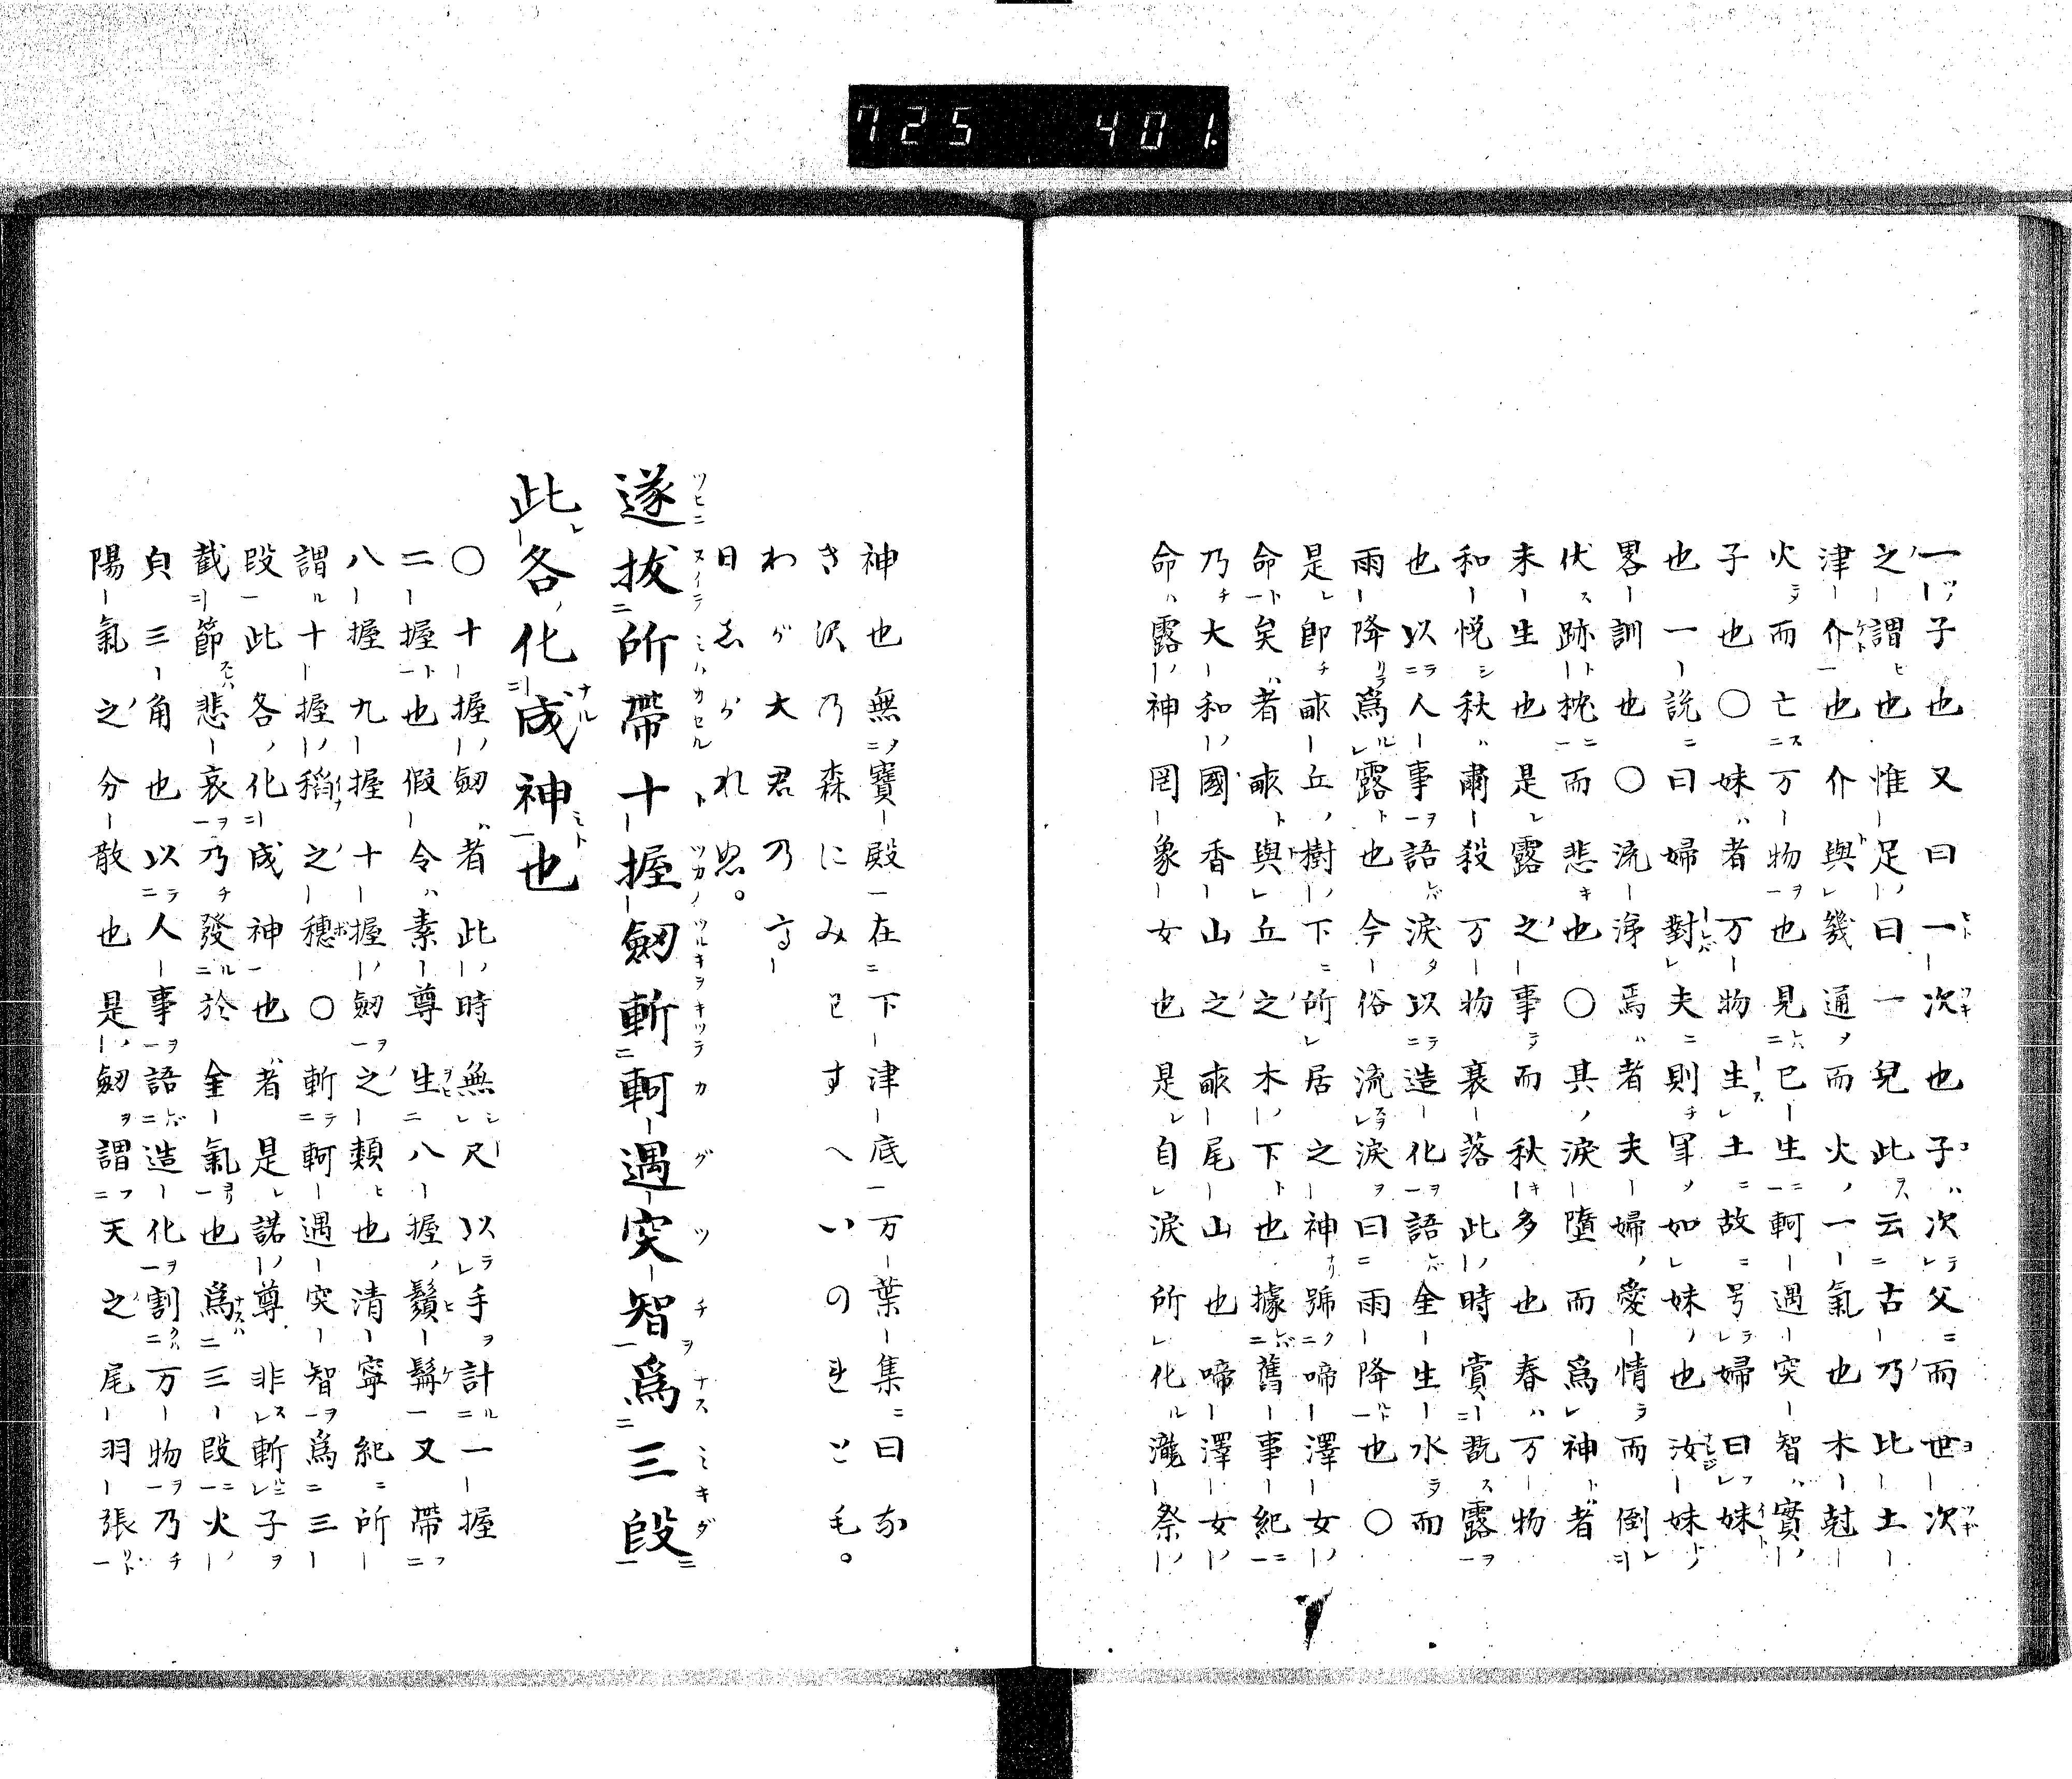 725 401.
一子也又曰一次也子次父而世次
之謂也惟足曰一兒此云古乃比土
津介也介與幾通而火一氣也木尅
火而亡万物也見已生軻遇突智實
子也〇妹者万物生土故号婦曰妹
也一說曰婦對夫則单如妹也汝妹
畧訓也〇流涕焉者夫婦愛情而倒
伏跡枕而悲也〇其淚墮而為神者
未生也是露之事而秋多也春万物
和悅秋肅殺万物衰落此時賞翫露
也以人事語淚以造化語金生水而
雨降為露也今俗流淚曰雨降也〇
是即畝丘樹下所居之神號啼澤女
命矣者畝與丘之木下也據舊事紀
乃大和國香山之畝尾山也啼澤女
命露神罔象女也是自淚所化瀧祭
神也無寶殿在下津底万葉集曰な
き沢乃森にみわすへいのれとも。
わが大君乃高
日志られぬ。
遂拔所帶十握劒斬軻遇突智為三段
此各化成神也
〇十握劒者此時無尺以手計一握
二握也假令素尊生八握鬚髯又帶
八握九握十握劒之類也清寧紀所
謂十握稻之穗〇斬軻遇突智為三
段此各化成神也者是諾尊非斬子
截節悲哀乃發於金氣也為三段火
貞三角也以人事語造化割万物乃
陽氣之分散也是劒謂天之尾羽張